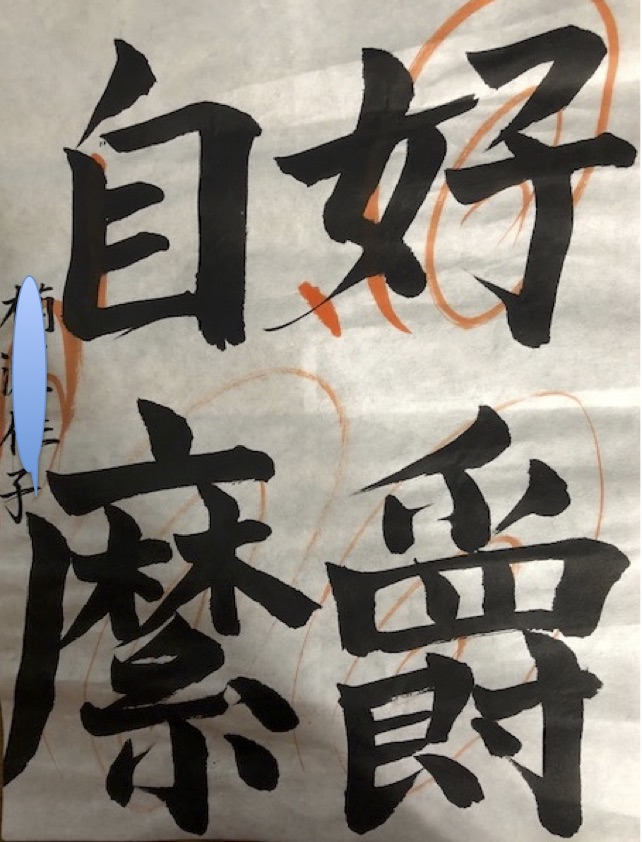 好爵
自縻
子